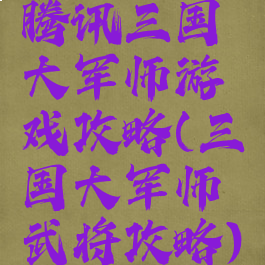 腾讯三国
大军师游
戏攻略(三
国大军师
武将攻略)